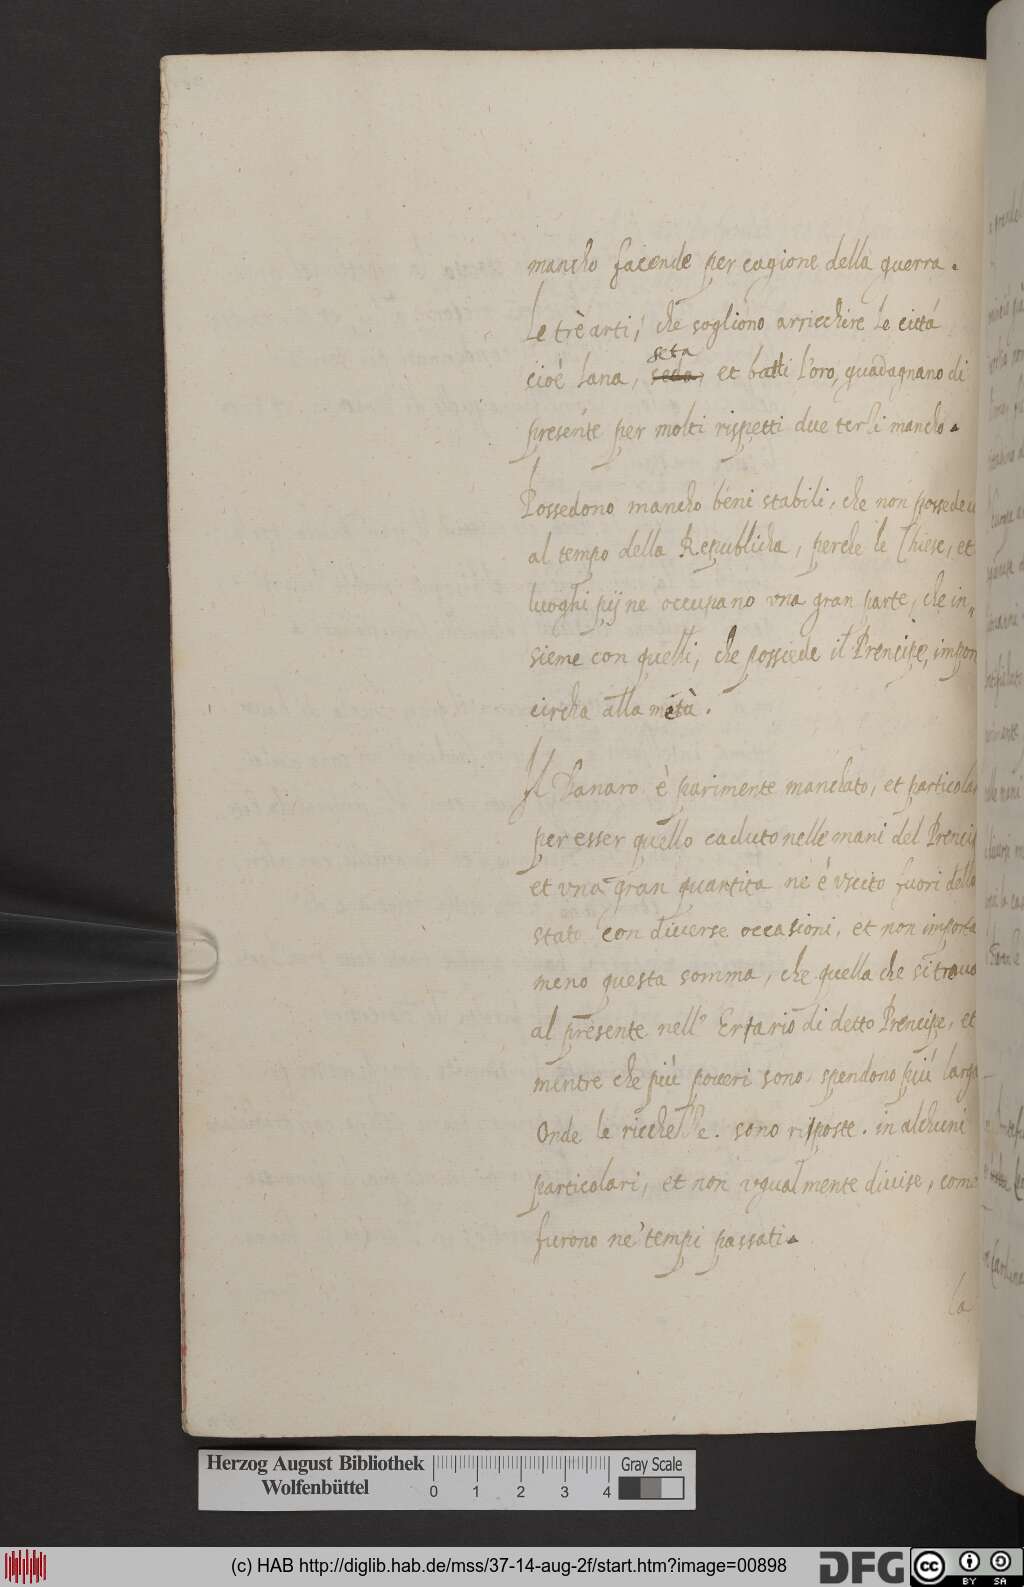 mancho facende per cagione della guerra.
Le trè arti, che sogliono arricchire le città
cioè lana, seta
seda, et batti l'oro, guadagnano di
presente per molti rispetti due terzi mancho.
Possedono mancho beni stabili, che non possedeu
al tempo della Republicha, perche le Chiese, et
luoghi pij ne occupano vna gran parte, che in„
sieme con quelli, che possiede il Prencipe, impor
circha alla metà.
Il Danaro è parimente manchato, et particolar
per esser quello caduto nelle mani del Prencip
et vna gran quantita ne è vscito fuori della
stato con diuerse occasioni, et non importa
meno questa somma, che quella che si troua
al presente nell' Errario di detto Prencipe, et
mentre che più poueri sono, spendono più larga
Onde le ricchezze. sono risposte. in alchuni
particolari, et non vgualmente diuise, come
furono ne' tempi passati.
la
Herzog August Bibliothek
Wolfenbüttel
0 1 2 3 4
Gray Scale
(c) HAB http://diglib.hab.de/mss/37-14-aug-2f/start.htm?image=00898
DFG
cc BY SA